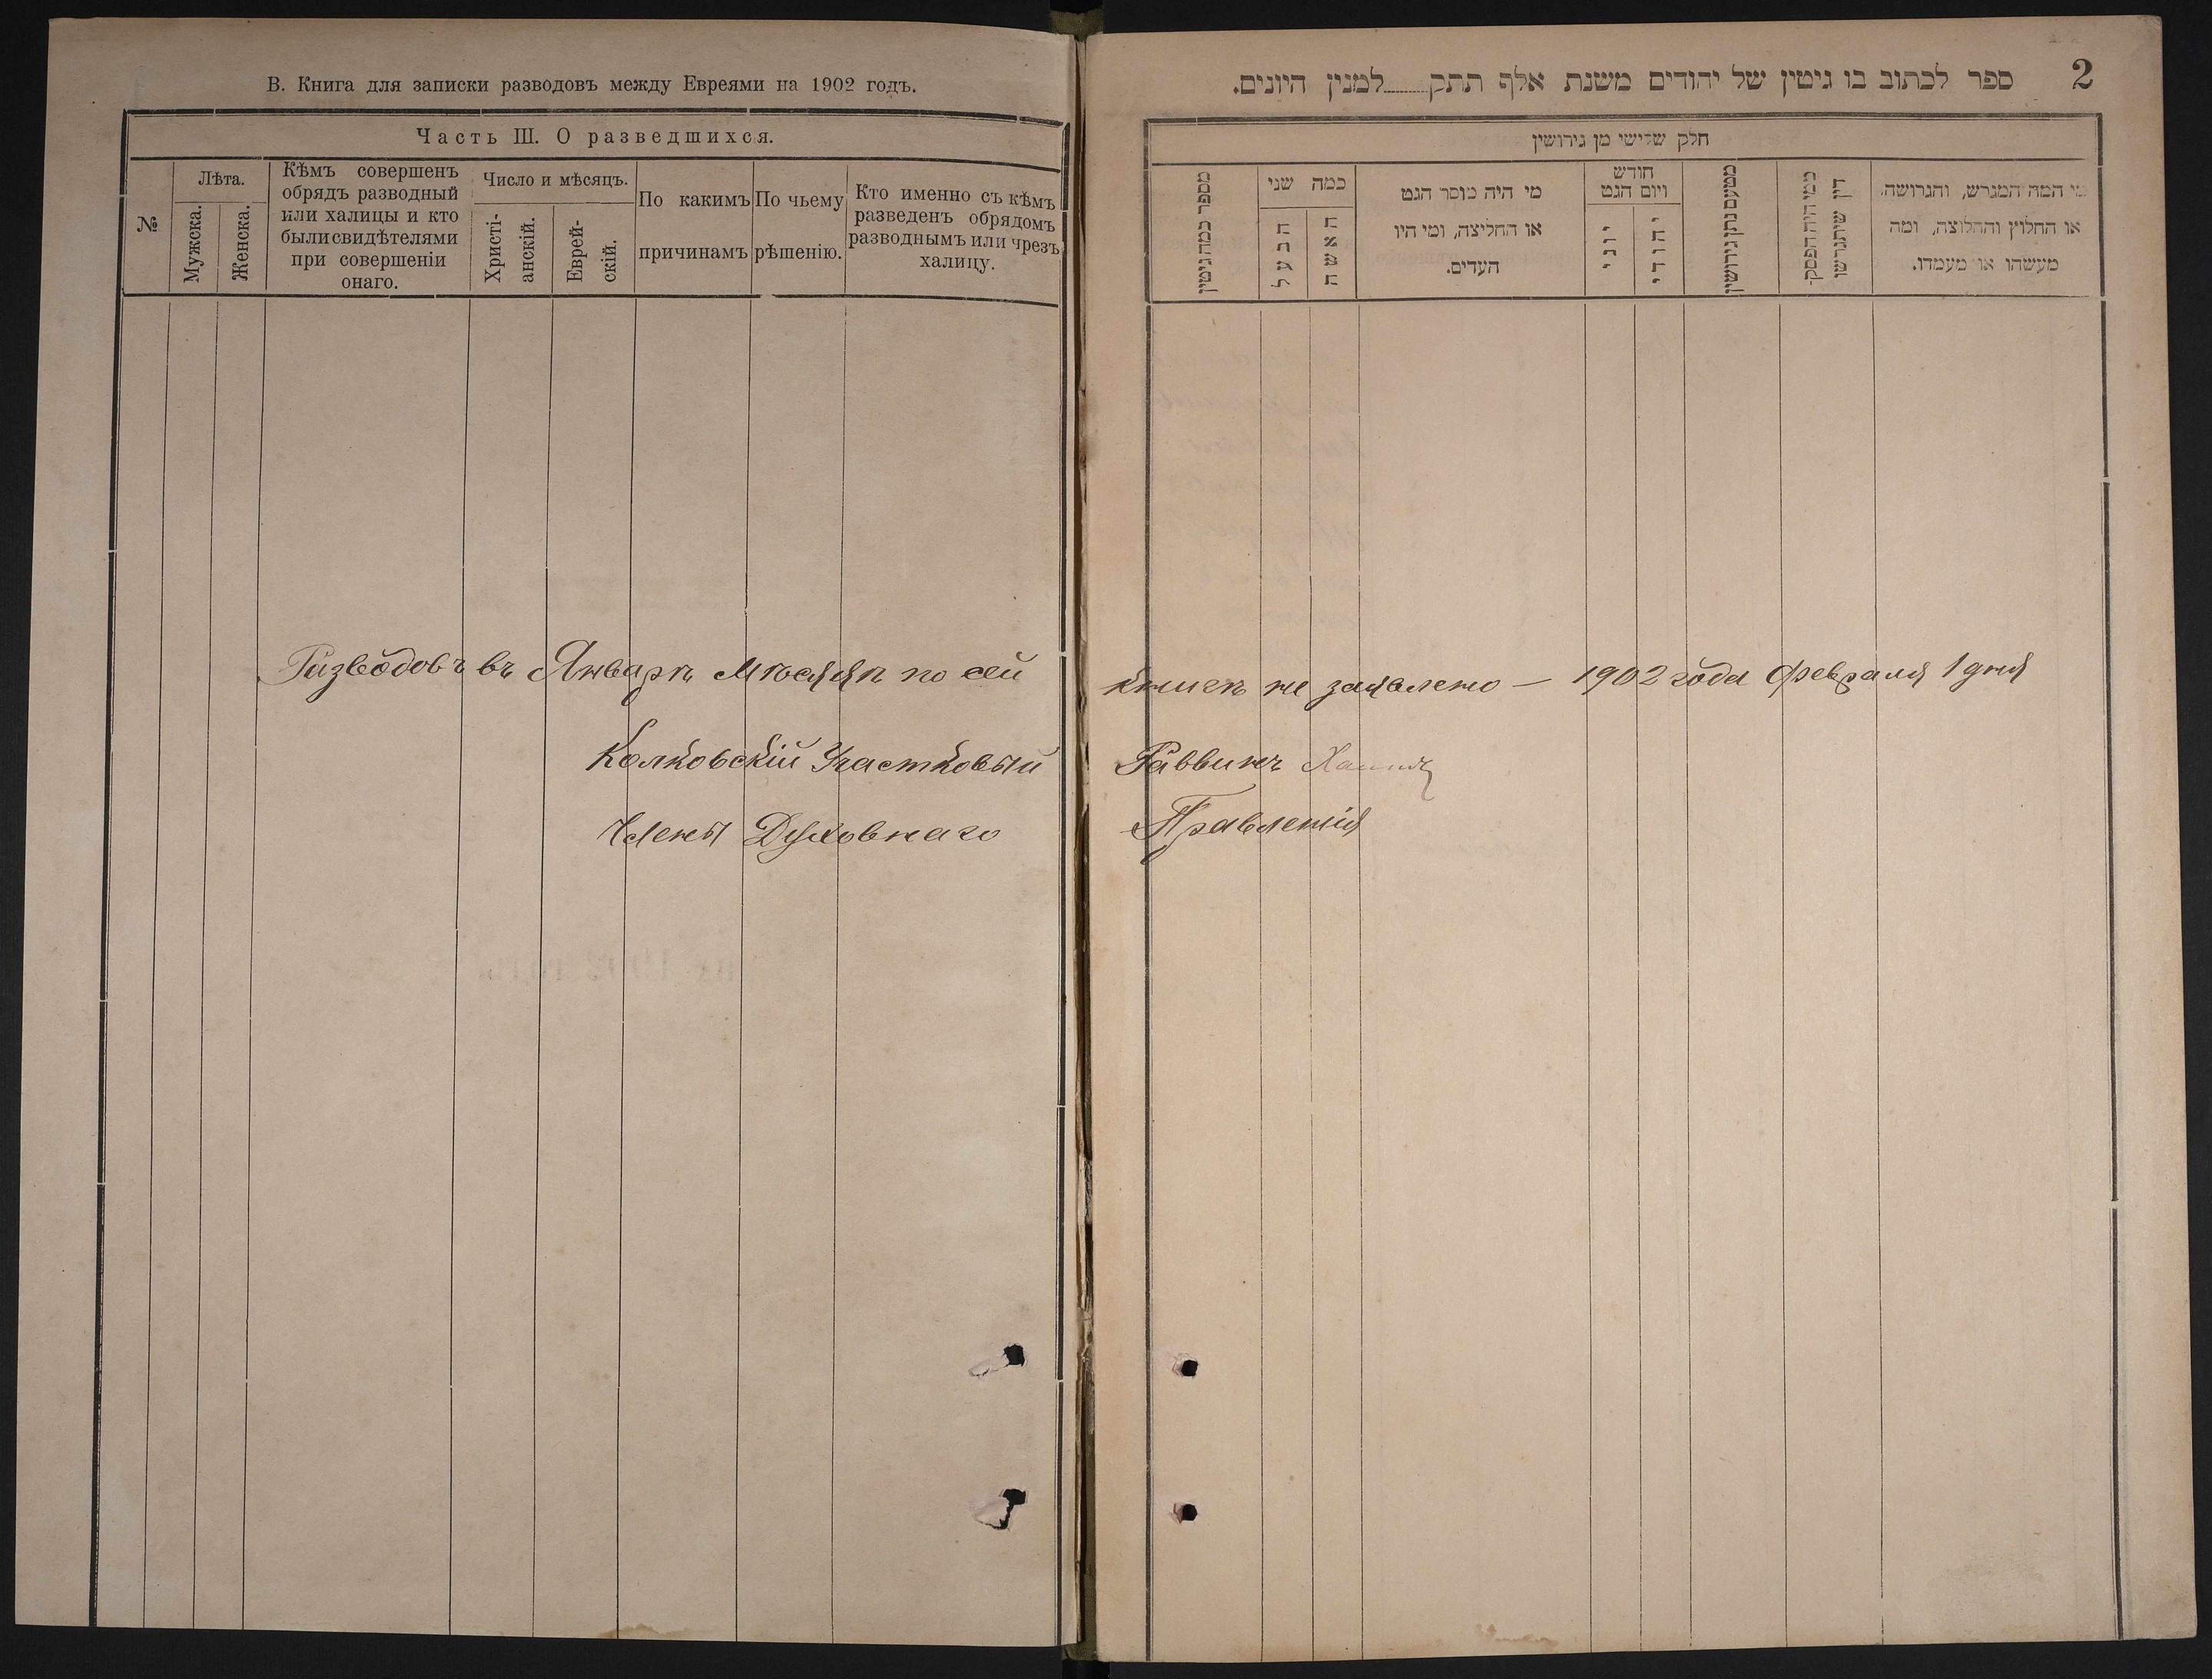 В. Книга для записки разводовъ между Евреями на 1902 годъ.
Часть III. О разведшихся.
№
Лѣта.
Мужска.
Женска.
Кѣмъ совершенъ
обрядъ разводный
или халицы и кто
были свидѣтелями
при совершеніи
онаго.
Число и мѣсяцъ.
Христі-
анскій.
Еврей-
скій.
По какимъ
причинамъ
По чьему
рѣшенію.
Кто именно съ кѣмъ
разведенъ обрядомъ
разводнымъ или чрезъ
халицу.
2
ספר לכתוב בו גיטין של יהודים משנת אלף תתק למנין היונים.
חלק שלישי מן גירושין
מי המה המגרש, והגרושה.
או החלוץ והחלוצה, ומה
מעשהו או מעמדו.
כמי היה הפסק
דין שיתגרשו
מטעם נתן גירושין
חודש
ויום הגט
יהודי
יוני
מי היה מוסר הגט
או החליצה, ומי היו
העדים.
כמה שני
האשה
הבעל
מספר כמה גיטין
Разводовъ въ Январѣ Мѣсяцѣ по сей книгѣ не заявлено — 1902 года Февраля 1 дня
Колковскій Участковый Раввинъ
Члены Духовнаго Правленія